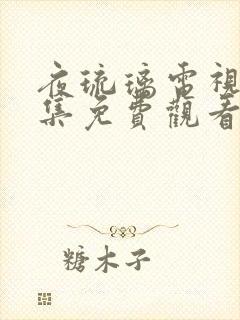 夜琉璃電視
集免費觀看
糖木子